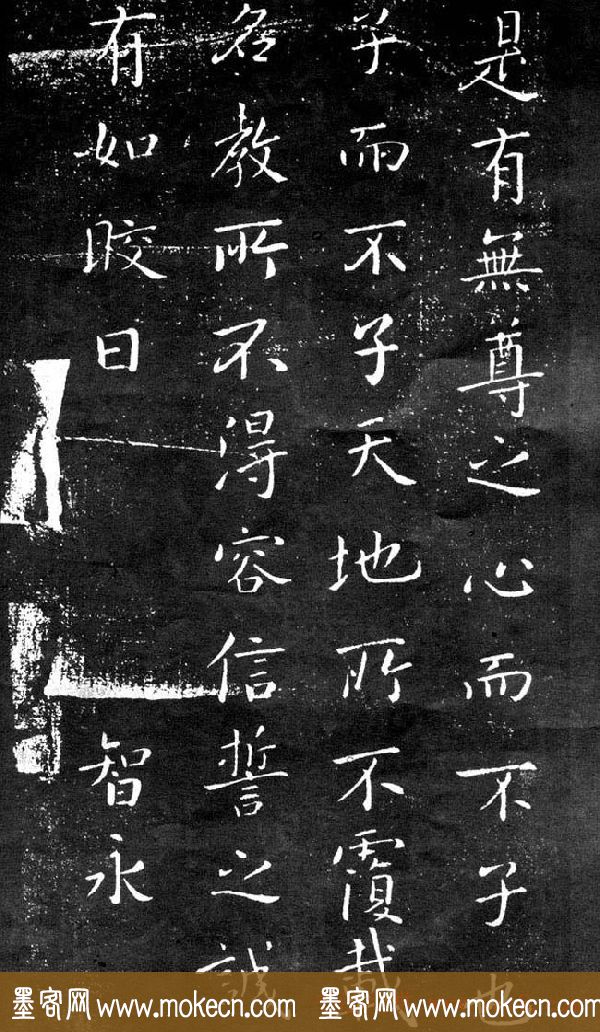 是有無尊之心而不子也
子而不子天地所不覆載
名教所不得容信誓之誠
有如晈日 智永
墨客网 www.mokecn.com 墨客网 www.mokecn.com